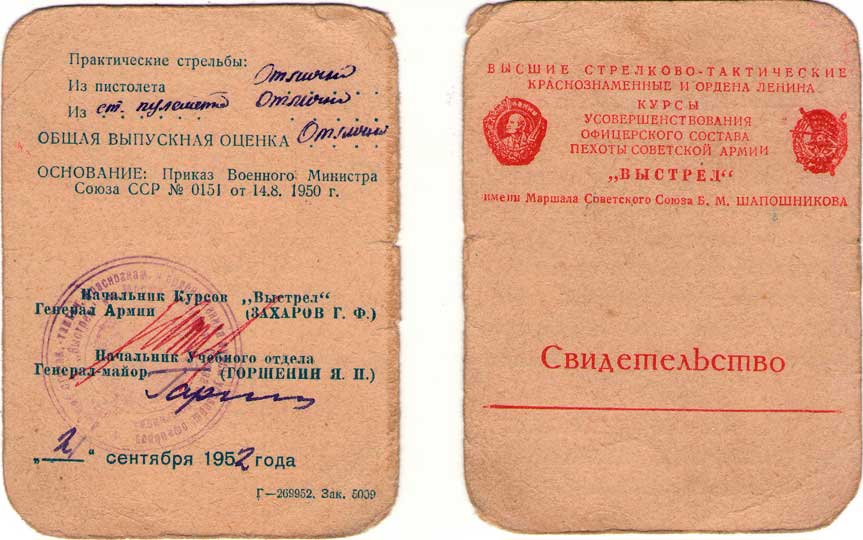 Практические стрельбы:
Из пистолета Отлично
Из ст. пулемета Отлично
ОБЩАЯ ВЫПУСКНАЯ ОЦЕНКА Отлично
ОСНОВАНИЕ: Приказ Военного Министра
Союза ССР № 0151 от 14.8. 1950 г.
Начальник Курсов „Выстрел“
Генерал Армии (ЗАХАРОВ Г. Ф.)
Начальник Учебного отдела
Генерал-майор (ГОРШЕНИН Я. П.)
„21“ сентября 1952 года
Г—269952. Зак. 5009
ВЫСШИЕ СТРЕЛКОВО-ТАКТИЧЕСКИЕ
КРАСНОЗНАМЕННЫЕ И ОРДЕНА ЛЕНИНА
КУРСЫ
УСОВЕРШЕНСТВОВАНИЯ
ОФИЦЕРСКОГО СОСТАВА
ПЕХОТЫ СОВЕТСКОЙ АРМИИ
„ВЫСТРЕЛ“
имени Маршала Советского Союза Б. М. ШАПОШНИКОВА
Свидетельство